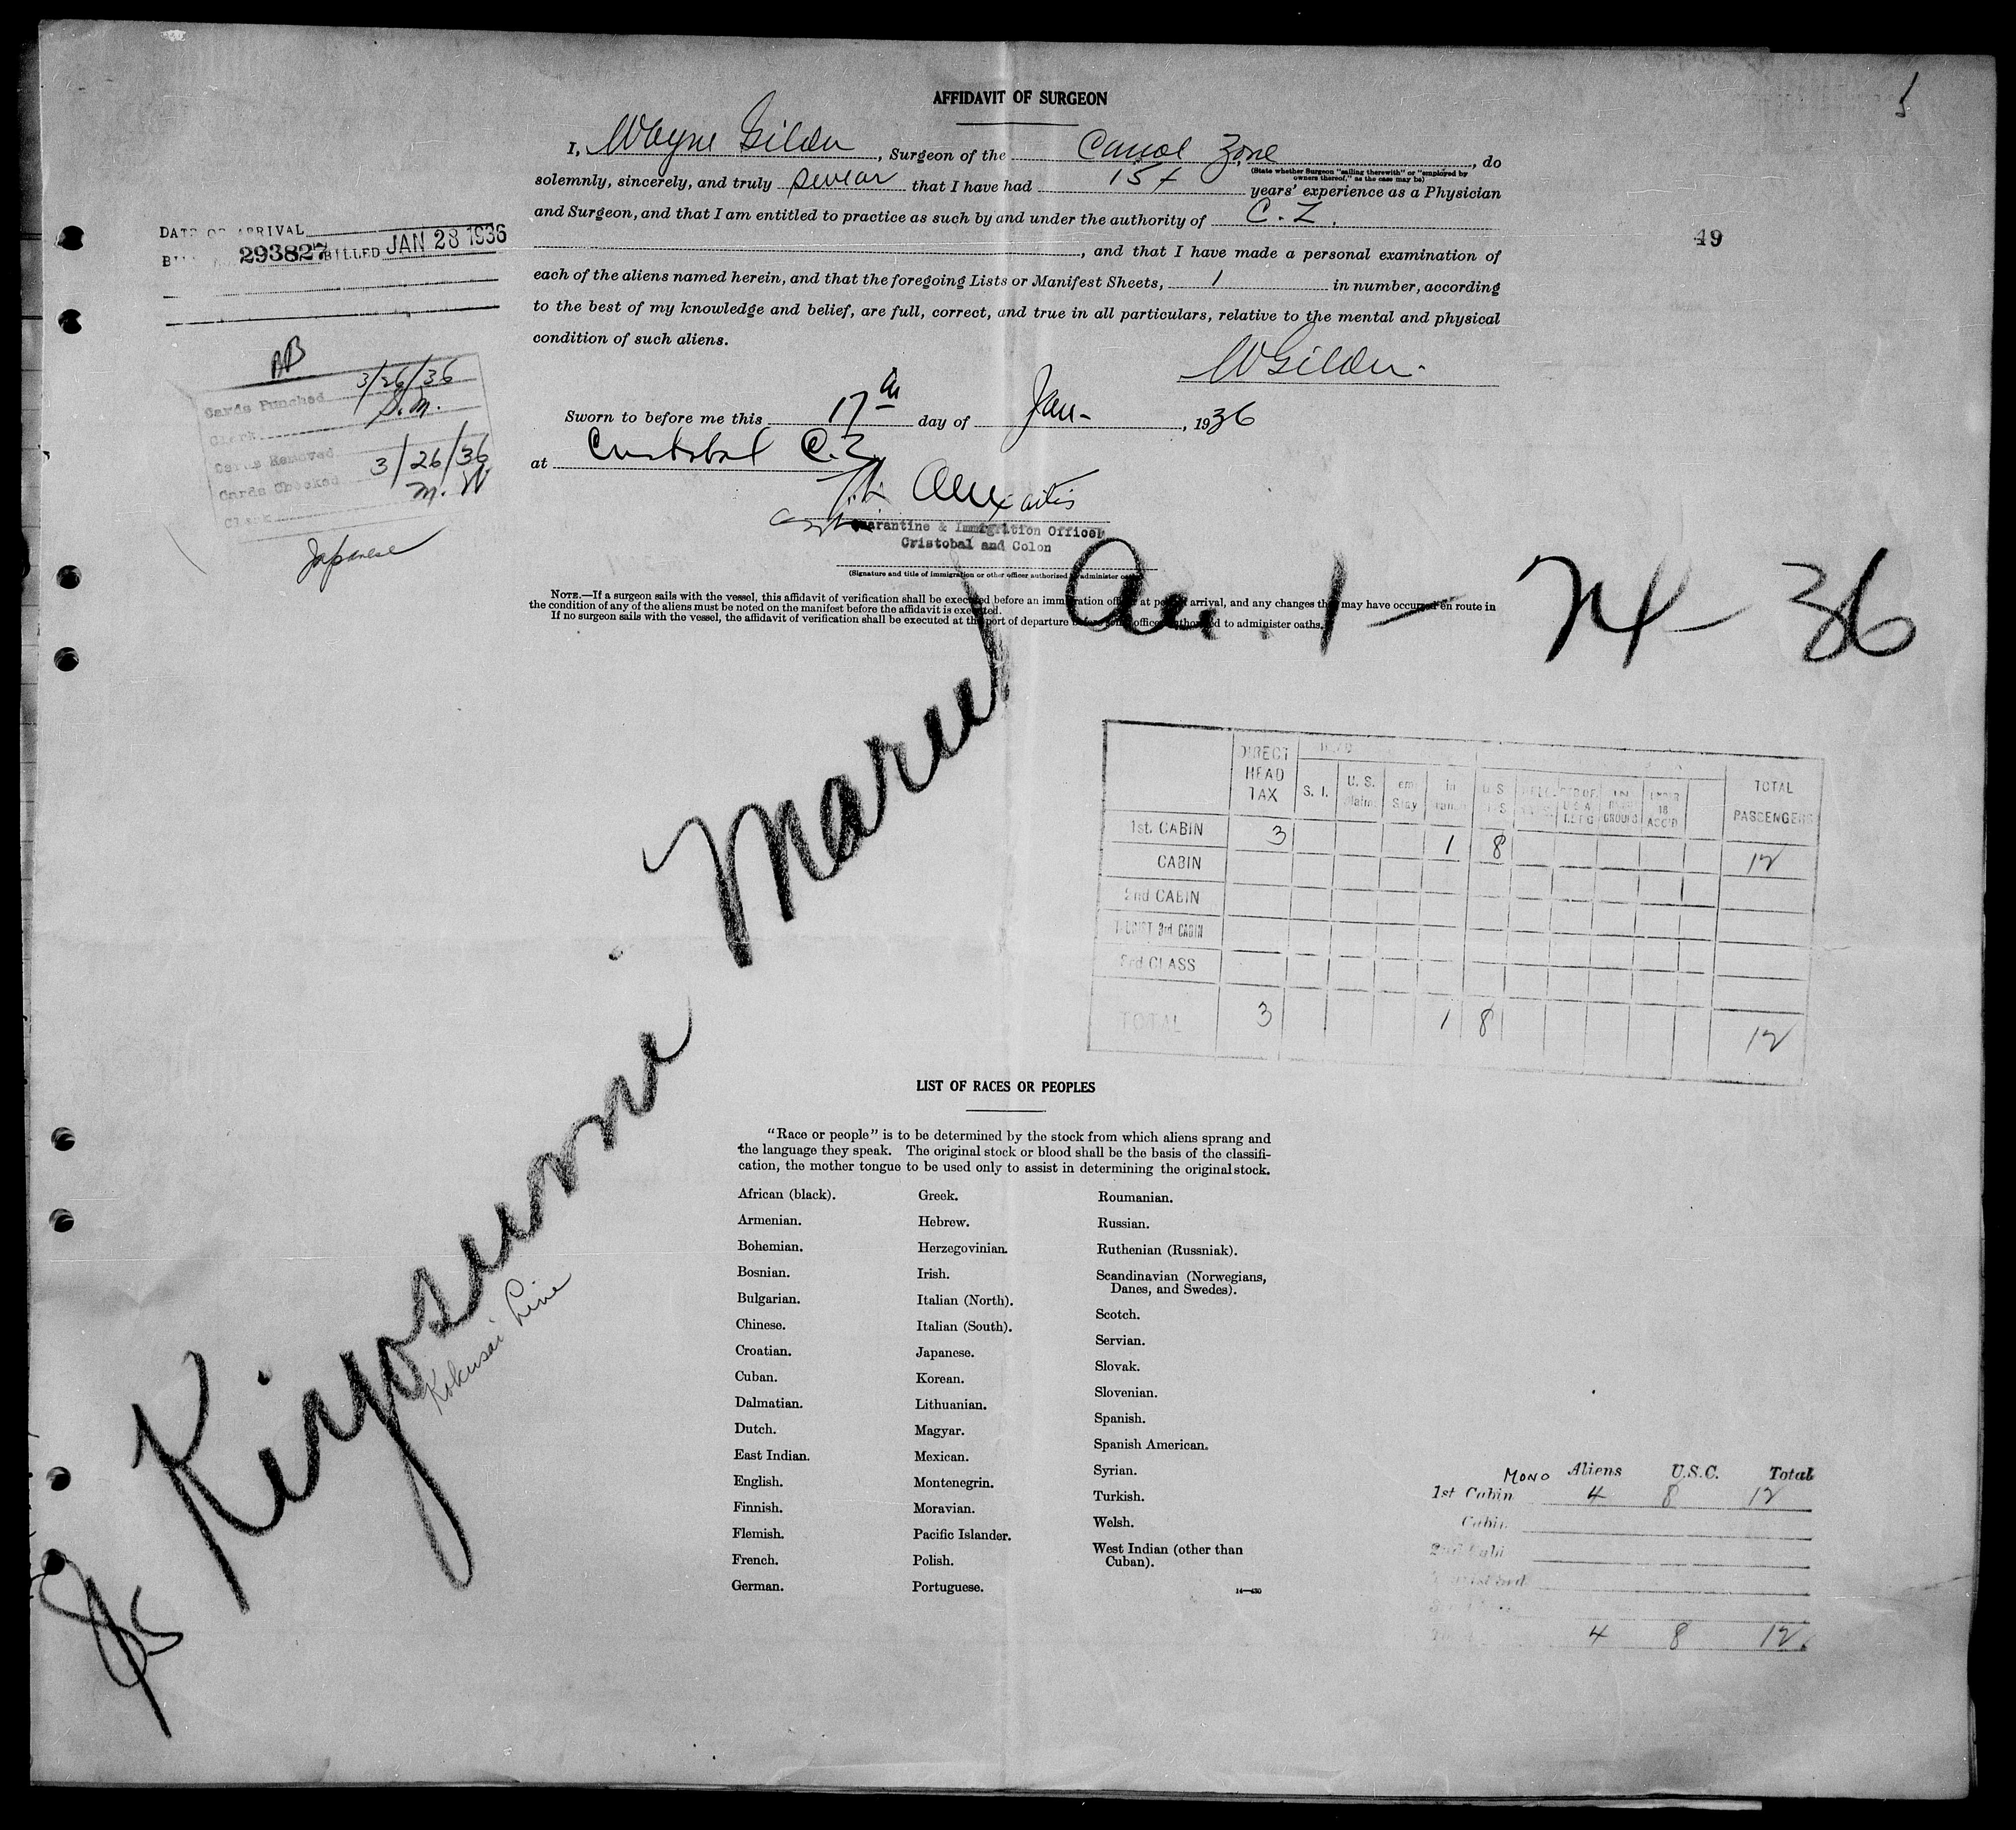 AFFIDAVIT OF SURGEON
I, Wayne Gilder, Surgeon of the Canal Zone, do
(State whether Surgeon "sailing therewith" or "employed by owners thereof," as the case may be)
solemnly, sincerely, and truly swear that I have had 15+ years' experience as a Physician
and Surgeon, and that I am entitled to practice as such by and under the authority of C. Z.
, and that I have made a personal examination of
each of the aliens named herein, and that the foregoing Lists or Manifest Sheets, 1 in number, according
to the best of my knowledge and belief, are full, correct, and true in all particulars, relative to the mental and physical
condition of such aliens.
W Gilder.
Sworn to before me this 17th day of Jan-, 1936
at Cristobal C.Z.
Quarantine & Immigration Officer
Cristobal and Colon
(Signature and title of immigration or other officer authorized to administer oaths)
NOTE.—If a surgeon sails with the vessel, this affidavit of verification shall be executed before an immigration officer at port of arrival, and any changes that may have occurred en route in
the condition of any of the aliens must be noted on the manifest before the affidavit is executed.
If no surgeon sails with the vessel, the affidavit of verification shall be executed at the port of departure before some officer authorized to administer oaths.
DATE OF ARRIVAL
293827 BILLED JAN 28 1936
49
BB
Cards Punched 3/26/36
Clerk S.M.
Cards Removed
Cards Checked 3/26/36
Clerk M. W
Japanese
Kiyosumi Maru Arr. 1-24-36
Kokusai Line
DIRECT HEAD TAX S. I. U. S. Claims Tem Stay in U S TOTAL PASSENGERS
1st. CABIN 3 1 8 12
CABIN
2nd CABIN
TOURIST 3rd CABIN
3rd CLASS
TOTAL 3 1 8 12
LIST OF RACES OR PEOPLES
"Race or people" is to be determined by the stock from which aliens sprang and
the language they speak. The original stock or blood shall be the basis of the classifi-
cation, the mother tongue to be used only to assist in determining the original stock.
African (black).
Armenian.
Bohemian.
Bosnian.
Bulgarian.
Chinese.
Croatian.
Cuban.
Dalmatian.
Dutch.
East Indian.
English.
Finnish.
Flemish.
French.
German.
Greek.
Hebrew.
Herzegovinian.
Irish.
Italian (North).
Italian (South).
Japanese.
Korean.
Lithuanian.
Magyar.
Mexican.
Montenegrin.
Moravian.
Pacific Islander.
Polish.
Portuguese.
Roumanian.
Russian.
Ruthenian (Russniak).
Scandinavian (Norwegians,
Danes, and Swedes).
Scotch.
Servian.
Slovak.
Slovenian.
Spanish.
Spanish American.
Syrian.
Turkish.
Welsh.
West Indian (other than
Cuban).
14—430
MONO Aliens U.S.C. Total
1st Cabin 4 8 12
Cabin
2nd Cabin
4 8 12